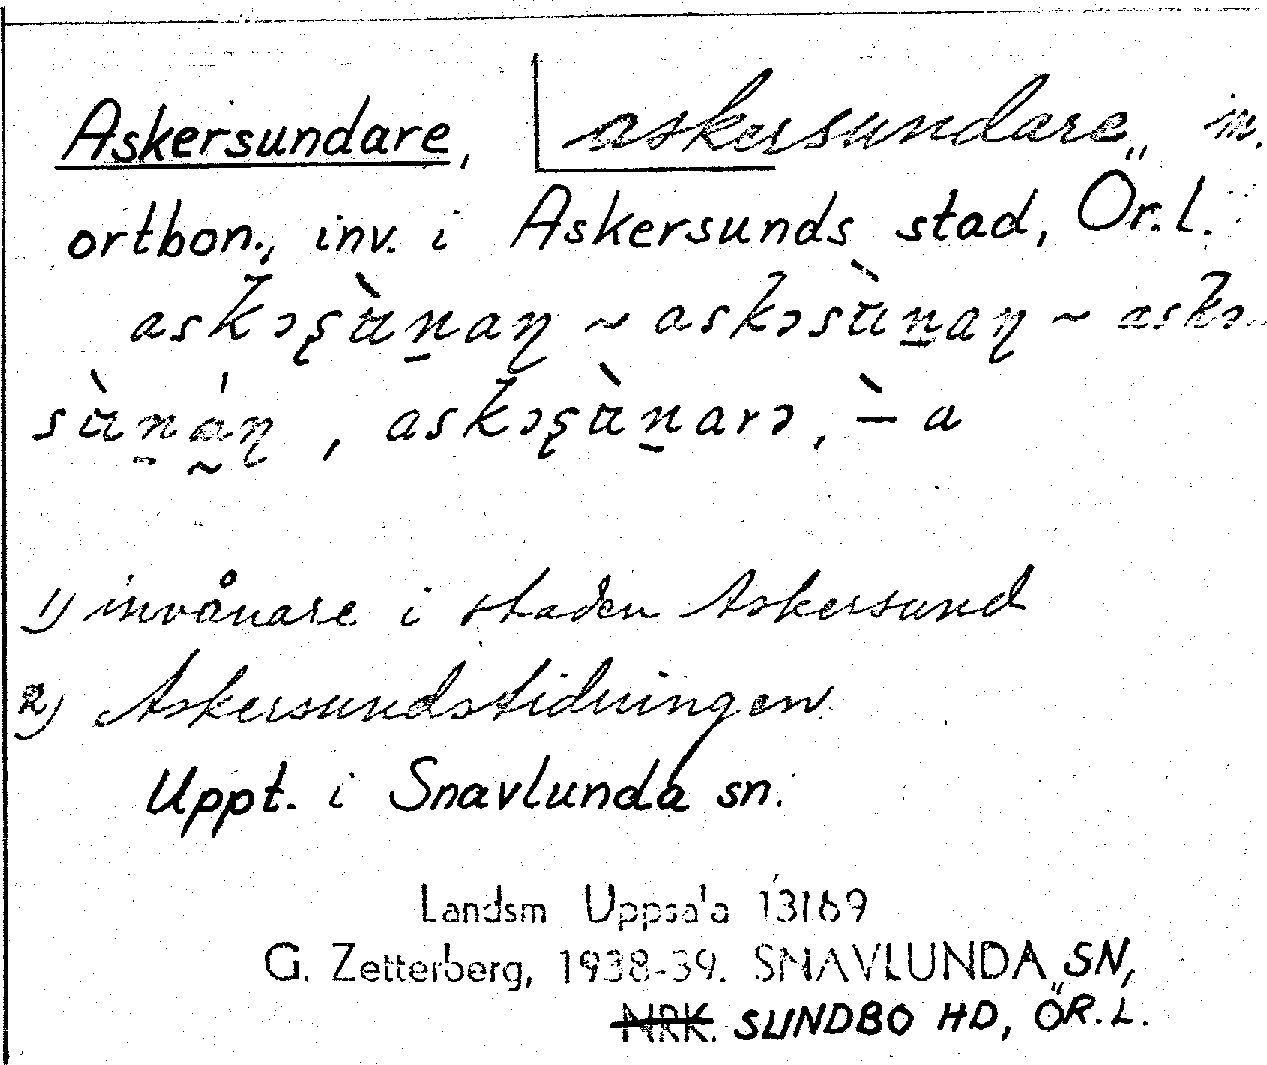 Askersundare, askersundare, m.
ortbon., inv. i Askersunds stad, Ör.l.
1) invånare i staden Askersund
2) Askersundstidningen
Uppt. i Snavlunda sn.
Landsm Uppsala 13169
G. Zetterberg, 1938-39. SNAVLUNDA SN,
NRK. SUNDBO HD, ÖR.L.